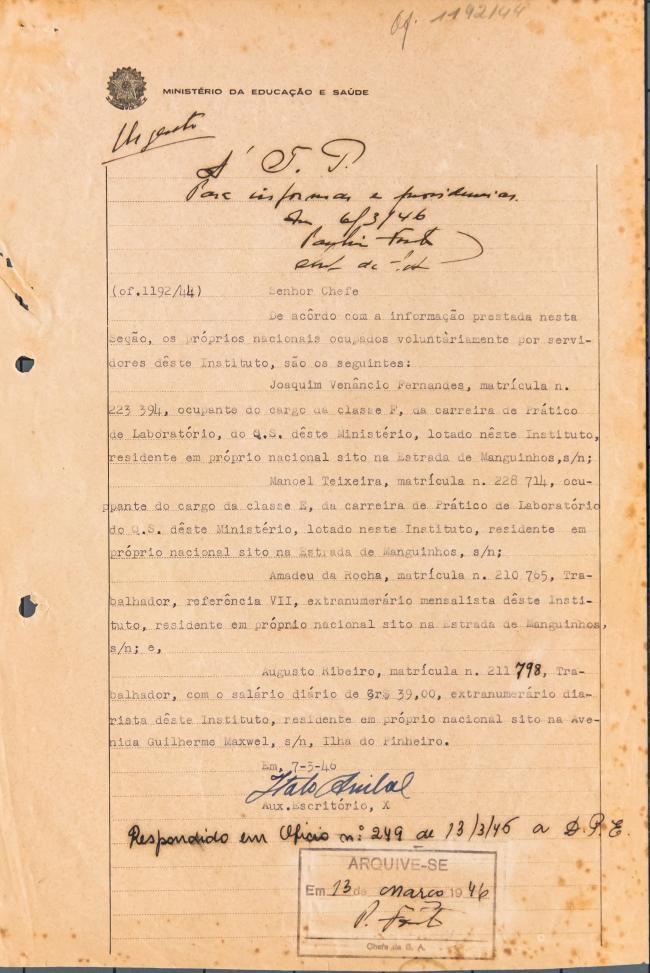 Of. 1192/44
MINISTÉRIO DA EDUCAÇÃO E SAÚDE
Urgente
À T. P.
Para informar e providencias.
Em 6/3/46
(of.1192/44) Senhor Chefe
De acôrdo com a informação prestada nesta
Seção, os próprios nacionais ocupados voluntàriamente por servi-
dores dêste Instituto, são os seguintes:
Joaquim Venâncio Fernandes, matrícula n.
223 394, ocupante do cargo da classe F, da carreira de Prático
de Laboratório, do Q.S. dêste Ministério, lotado nêste Instituto,
residente em próprio nacional sito na Estrada de Manguinhos,s/n;
Manoel Teixeira, matrícula n. 228 714, ocu-
pante do cargo da classe E, da carreira de Prático de Laboratório
do Q.S. dêste Ministério, lotado neste Instituto, residente em
próprio nacional sito na Estrada de Manguinhos, s/n;
Amadeu da Rocha, matrícula n. 210 765, Tra-
balhador, referência VII, extranumerário mensalista dêste Insti-
tuto, residente em próprio nacional sito na Estrada de Manguinhos,
s/n; e,
Augusto Ribeiro, matrícula n. 211 798, Tra-
balhador, com o salário diário de Cr$ 39,00, extranumerário dia-
rista dêste Instituto, residente em próprio nacional sito na Ave-
nida Guilherme Maxwel, s/n, Ilha do Pinheiro.
Em, 7-3-46
Italo Anibal
Aux.Escritório, X
Respondido em Oficio nº 249 de 13/3/46 a D.P.E.
ARQUIVE-SE
Em 13 de março 1946
Chefe da S. A.